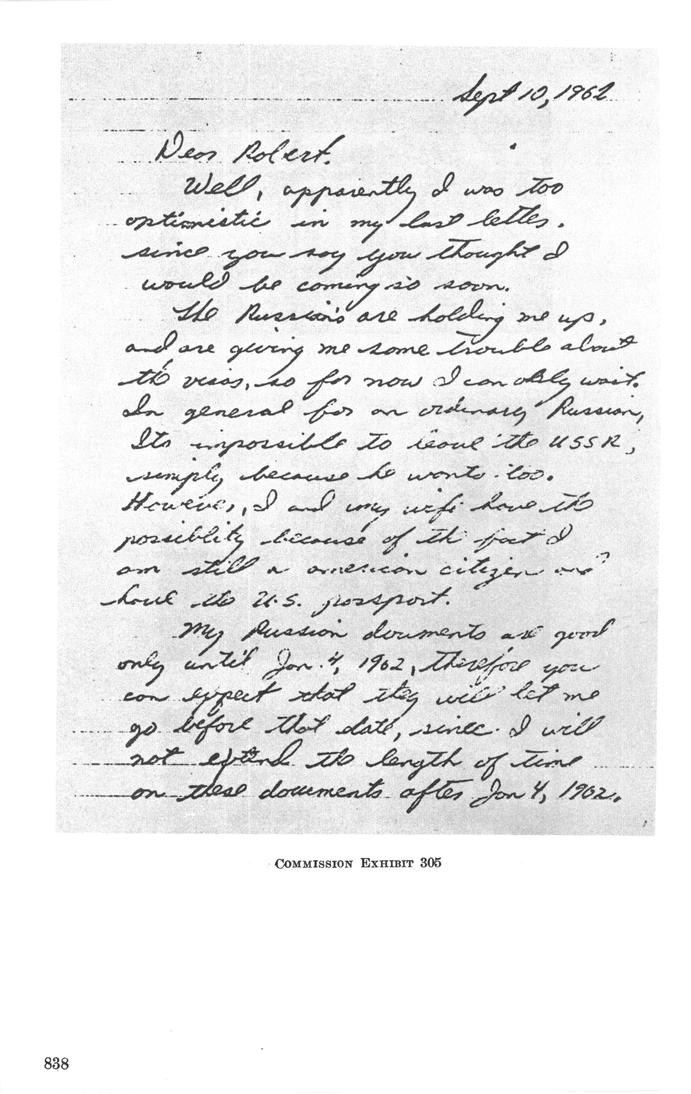 Sept 10, 1962
Dear Robert.
Well, apparently I was too
optimistic in my last letter.
since you say you thought I
would be coming so soon.
The Russian's are holding me up,
and are giving me some trouble about
the visas, so for now I can only wait.
In general for an ordinary Russian,
Its impossible to leave the USSR,
simply because he wants too.
However, I and my wife have the
possiblity because of the fact I
am still a american citizen and
have the U.S. passport.
My Russian douments are good
only until Jan. 4, 1962, therefore you
can expect that they will let me
go before that date, since I will
not extend the length of time
on these documents after Jan 4, 1962.
COMMISSION EXHIBIT 305
838